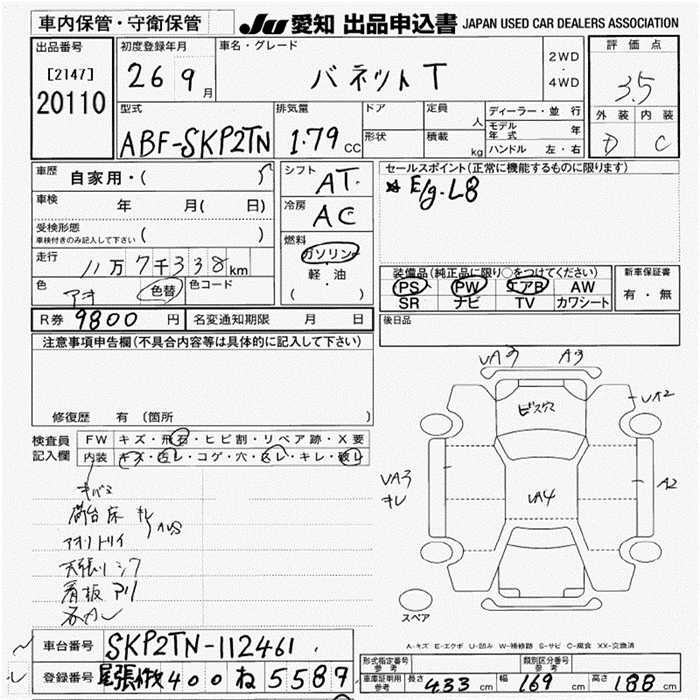 車内保管・守衛保管
JU 愛知 出品申込書 JAPAN USED CAR DEALERS ASSOCIATION
出品番号
[2147]
20110
初度登録年月
26 9月
車名・グレード
バネットT
2WD
・
4WD
評価点
3.5
外装 内装
D C
型式
ABF-SKP2TN
排気量
1.79 CC
ドア
形状
定員 人
積載 kg
ディーラー・並行
モデル年式 年
ハンドル 左・右
車歴 自家用・( )
車検 年 月( 日)
受検形態
車検付きのみ記入して下さい ( )
走行 11万7千338km
色 アオ 色替 色コード
シフト AT
冷房 AC
燃料
ガソリン
軽・油
( )
セールスポイント(正常に機能するものに限ります)
E/g-L8
装備品(純正品に限り○をつけてください)
PS PW エアB AW
SR ナビ TV カワシート
新車保証書
有・無
R券 9800円 名変通知期限 月 日
後日品
注意事項申告欄(不具合内容等は具体的に記入して下さい)
修復歴 有(箇所 )
検査員
記入欄
FW キズ・飛石・ヒビ割・リペア跡・X要
内装 キズ・汚レ・コゲ・穴・スレ・キレ・破レ
荷台床 キレ
天張リシワ
看板アリ
VA3 A3
UA2
ビス穴
UA3
キレ
UA4
A2
スペア
A-キズ E-エクボ U-凹み W-補修跡 S-サビ C-腐食 XX-交換済
車台番号 SKP2TN-112461
登録番号 尾張小牧 400 ね 5587
形式指定番号
参考
類別区分番号
参考
車庫証明用
参考
長さ 433 cm 幅 169 cm 高さ 188 cm